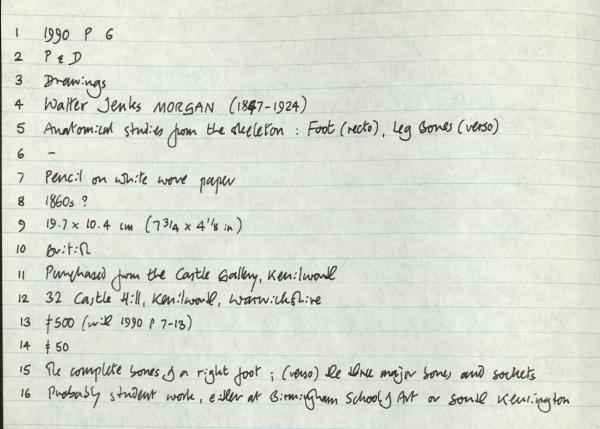 1 1990 P 6
2 P & D
3 Drawings
4 Walter Jenks MORGAN (1847-1924)
5 Anatomical studies from the skeleton : Foot (recto), Leg Bones (verso)
6 -
7 Pencil on white wove paper
8 1860s ?
9 19.7 x 10.4 cm (7 3/4 x 4 1/8 in)
10 British
11 Purchased from the Castle Gallery, Kenilworth
12 32 Castle Hill, Kenilworth, Warwickshire
13 £500 (with 1990 P 7-13)
14 £50
15 The complete bones of a right foot ; (verso) the three major bones and sockets
16 Probably student work, either at Birmingham School of Art or South Kensington